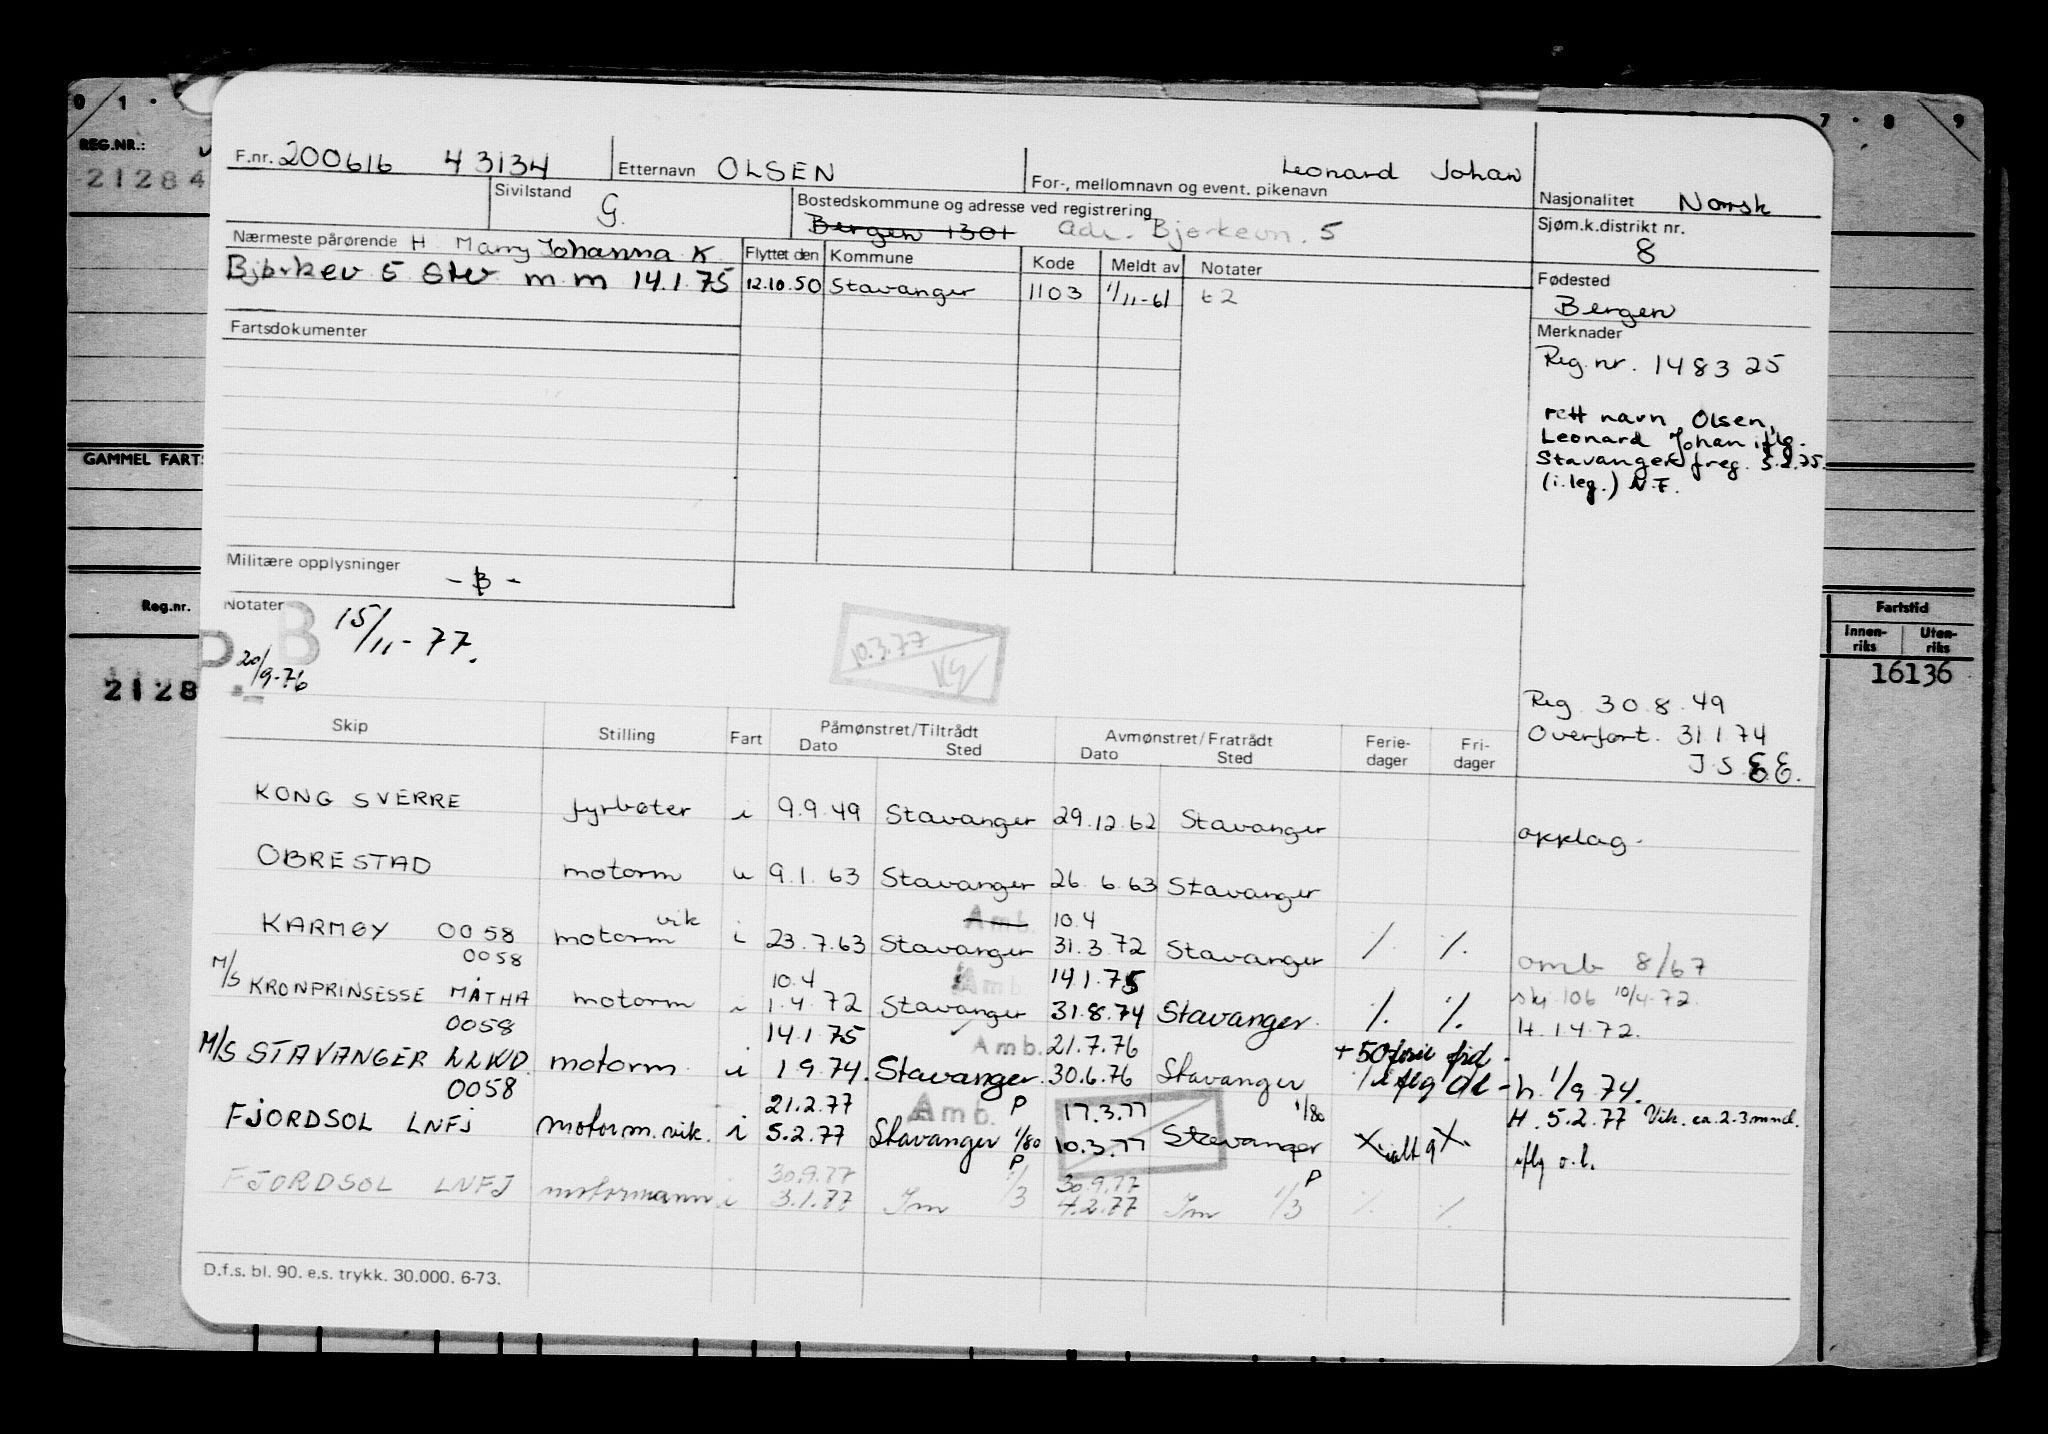 0 1 · 7 · 8 9
REG.NR.:
21284
F.nr. 200616 43134 Etternavn OLSEN For-, mellomnavn og event. pikenavn Leonard Johan
Nasjonalitet Norsk
Sivilstand G. Bostedskommune og adresse ved registrering
Bergen 1301 Adr. Bjerkevn. 5
Sjøm.k.distrikt nr. 8
Nærmeste pårørende H Marry Johanna K.
Bjerkev 5 Stv m.m 14.1.75
Flyttet den Kommune Kode Meldt av Notater
12.10.50 Stavanger 1103 1/11-61 t2
Fødested
Bergen
Fartsdokumenter
Merknader
Reg.nr. 148325
rett navn Olsen,
Leonard Johan iflg.
Stavanger freg. 5.2.75.
(i.leg.) N.F.
GAMMEL FARTS
Militære opplysninger
- B -
Notater
B 15/11-77.
20/9-76
10.3.77
Reg.nr.
2128
Fartstid
Innen-
riks
Uten-
riks
16136
Reg. 30.8.49
Overført. 31.1.74
J.S. E.E.
Skip Stilling Fart Påmønstret/Tiltrådt Avmønstret/Fratrådt Ferie-
dager Fri-
dager
Dato Sted Dato Sted
KONG SVERRE fyrbøter i 9.9.49 Stavanger 29.12.62 Stavanger opplag.
OBRESTAD motorm u 9.1.63 Stavanger 26.6.63 Stavanger
vik Amb. 10.4
KARMØY 0058 motorm i 23.7.63 Stavanger 31.3.72 Stavanger /. /. omb 8/67
0058 10.4 Amb 14.1.75
M/S KRONPRINSESSE MÄTHA motorm i 1.4.72 Stavanger 31.8.74 Stavanger. /. /. skj 106 10/4-72.
H. 1.4.72.
0058 14.1.75 Amb. 21.7.76
M/S STAVANGER LLWD. motorm. i 1.9.74. Stavanger. 30.6.76 Stavanger + 50 ferie frid -
iflg OL - h. 1/9.74.
0058 21.2.77 Amb. P 17.3.77 1/80
FJORDSOL LNFJ motorm.vik. i 5.2.77 Stavanger 1/80 10.3.77 Stavanger X ialt 9 X. H. 5.2.77 Vik. ca. 2-3 mnd.
iflg o.l.
30.9.77 P 30.9.77 P
FJORDSOL LNFJ motormann i 3.1.77 Im 1/3 4.2.77 Im 1/3 /. /.
D.f.s. bl. 90. e.s. trykk. 30.000. 6-73.